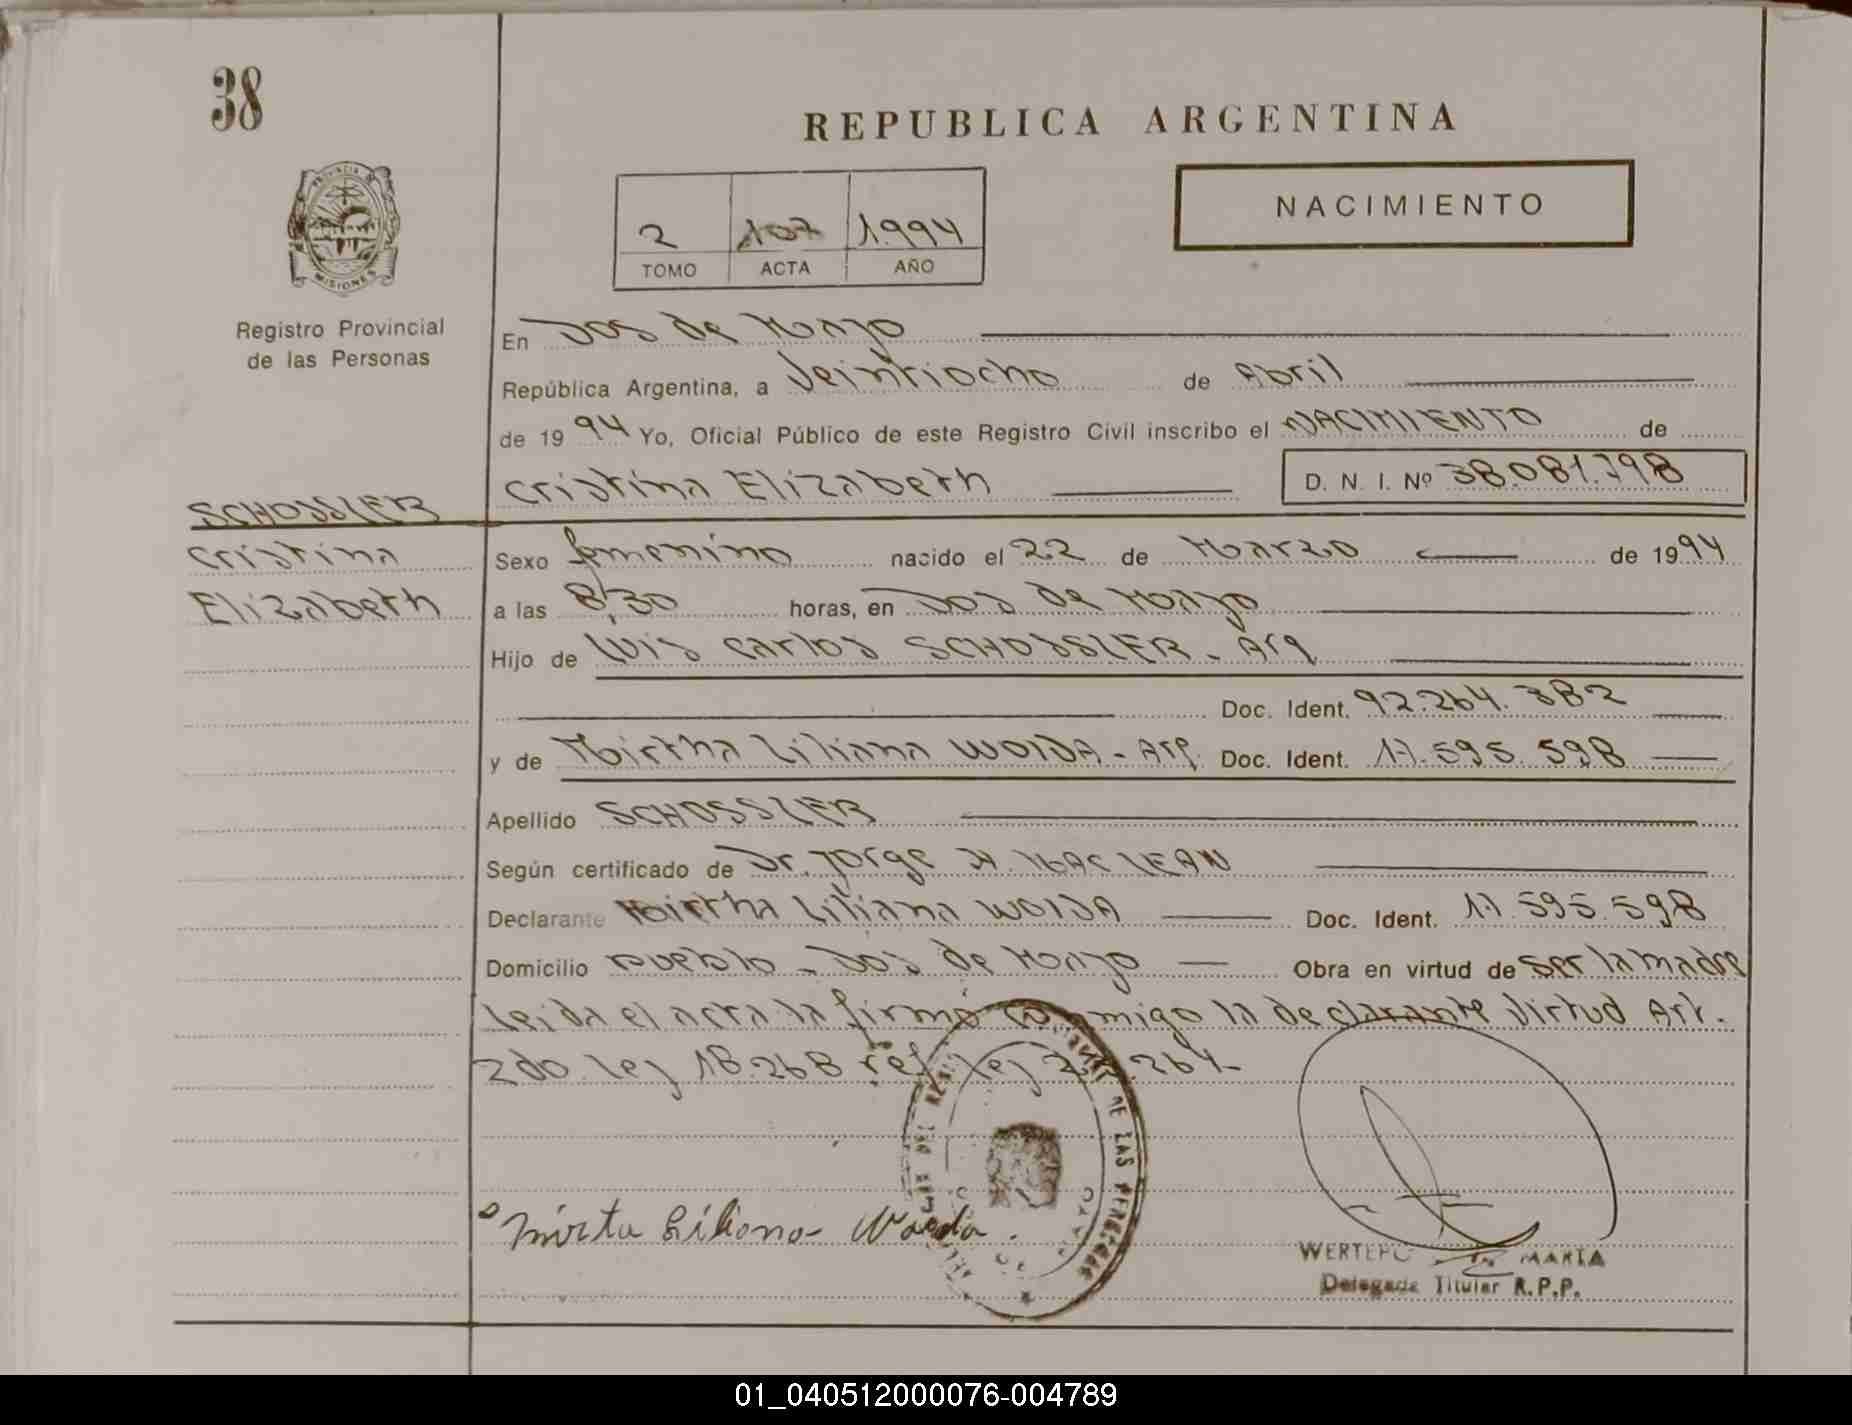 38
REPUBLICA ARGENTINA
PROVINCIA DE
MISIONES
NACIMIENTO
2 107 1.994
TOMO ACTA AÑO
Registro Provincial
de las Personas
En Dos de Mayo
República Argentina, a Veintiocho de Abril
de 19 94 Yo, Oficial Público de este Registro Civil inscribo el NACIMIENTO de
Cristina Elizabeth D. N. I. Nº 38.081.798
SCHOSSLER
Cristina
Elizabeth
Sexo femenino nacido el 22 de Marzo de 19 94
a las 8,30 horas, en Dos de Mayo
Hijo de Luis Carlos SCHOSSLER - Arg
Doc. Ident. 92.264.382
y de Mirtha Liliana WOIDA - Arg. Doc. Ident. 17.595.598
Apellido SCHOSSLER
Según certificado de Dr. Jorge A. MAC LEAN
Declarante Mirtha Liliana WOIDA Doc. Ident. 17.595.598
Domicilio Pueblo - Dos de Mayo Obra en virtud de ser la madre
Leida el acta la firmó conmigo la declarante Virtud Art.
2do. Ley 18.268 ref. Ley
DE LAS PERSONAS
Mirta Liliana Woida.
MARTA
Delegada Titular R.P.P.
01_040512000076-004789